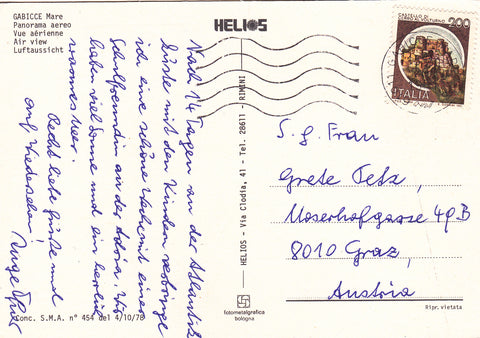 GABICCE Mare
Panorama aereo
Vue aérienne
Air view
Luftaussicht
HELIOS
CASTELLO DI
200
ITALIA
Nach 14 Tagen an der Atlantik
küste mit den Kindern verbringe
ich eine schöne Woche mit einer
Schulfreundin an der Adria. Wir
haben viel Sonne und ein herrlich
warmes Meer.
Recht liebe Grüße und
auf Wiedersehen!
Inge
S. g. Frau
Grete Tetz,
Moserhofgasse 49B
8010 Graz,
Austria
HELIOS - Via Clodia, 41 - Tel. 28611 - RIMINI
fotometalgrafica
bologna
Conc. S.M.A. n° 454 del 4/10/78
Ripr. vietata